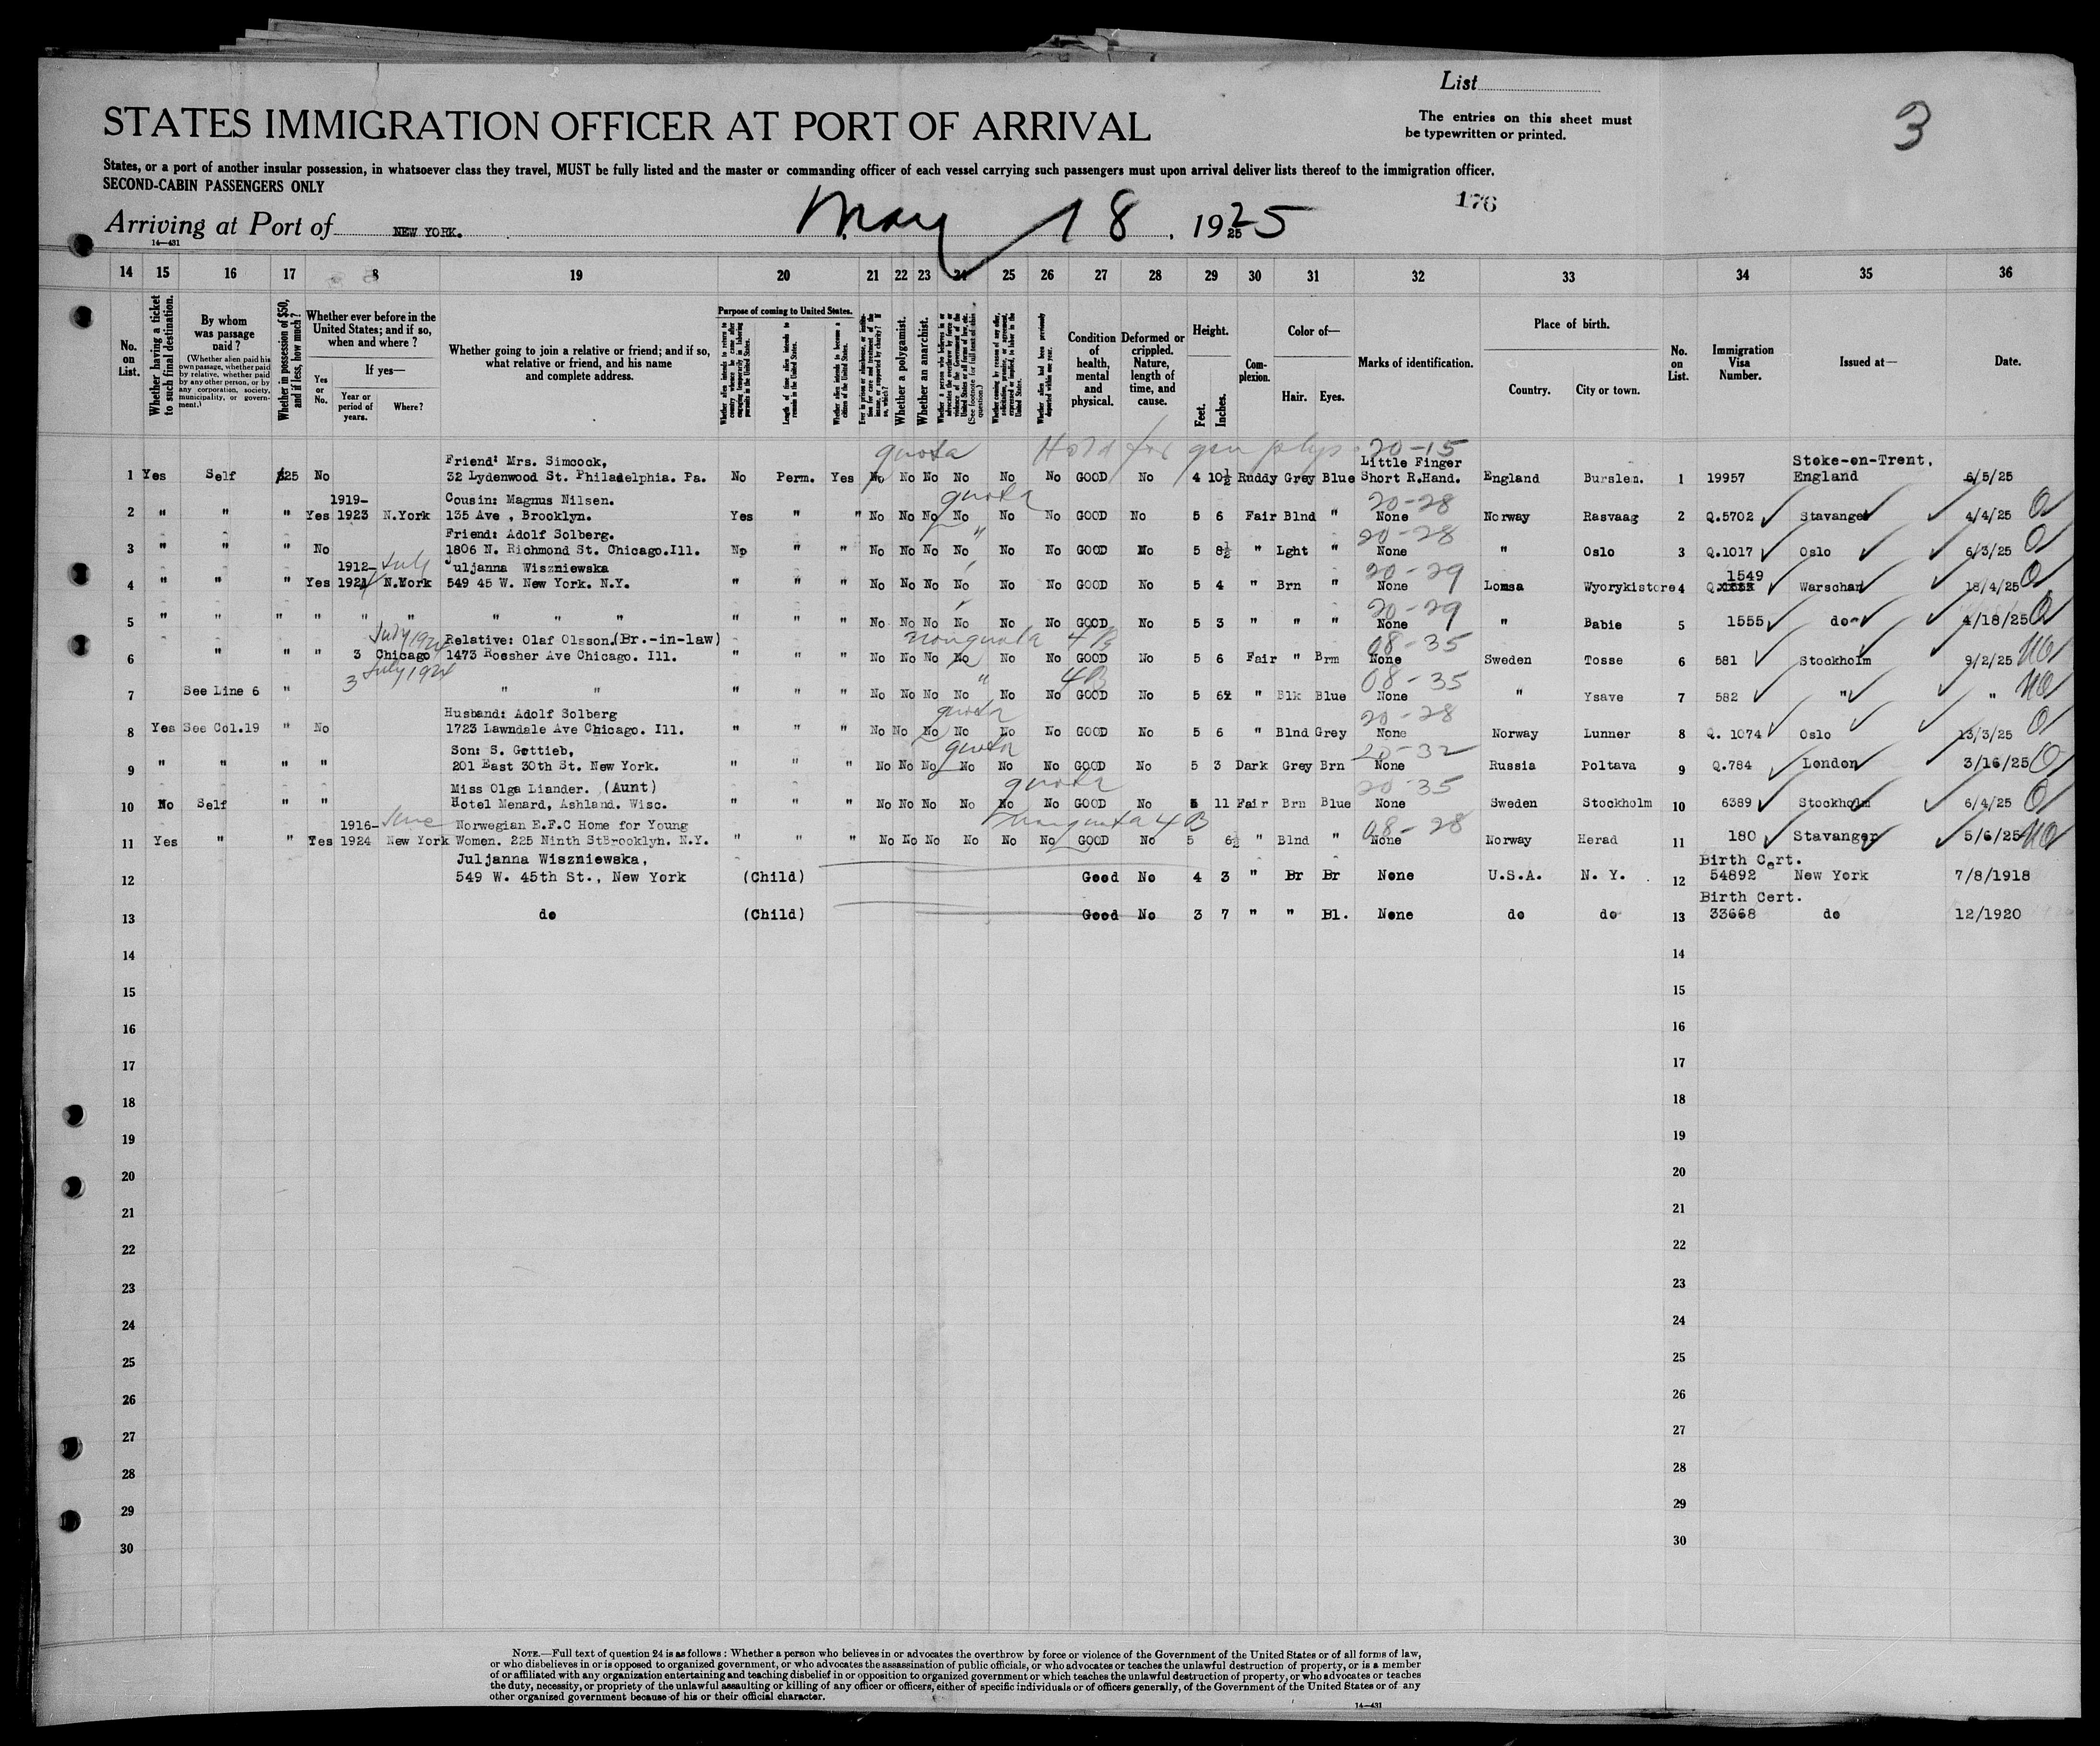 List
STATES IMMIGRATION OFFICER AT PORT OF ARRIVAL
The entries on this sheet must
be typewritten or printed.
3
States, or a port of another insular possession, in whatsoever class they travel, MUST be fully listed and the master or commanding officer of each vessel carrying such passengers must upon arrival deliver lists thereof to the immigration officer.
SECOND-CABIN PASSENGERS ONLY
176
Arriving at Port of NEW YORK. May 18, 1925
14—431
14 15 16 17 8 19 20 21 22 23 24 25 26 27 28 29 30 31 32 33 34 35 36
No. on List.
Whether having a ticket to such final destination.
By whom was passage paid?
(Whether alien paid his own passage, whether paid by relative, whether paid by any other person, or by any corporation, society, municipality, or government.)
Whether in possession of $50, and if less, how much?
Whether ever before in the United States; and if so, when and where?
Yes or No.
If yes—
Year or period of years.
Where?
Whether going to join a relative or friend; and if so, what relative or friend, and his name and complete address.
Purpose of coming to United States.
Length of time alien intends to remain in the United States.
Whether alien intends to become a citizen of the United States.
Whether a polygamist.
Whether an anarchist.
(See footnote for full text of this question.)
Condition of health, mental and physical.
Deformed or crippled. Nature, length of time, and cause.
Height.
Feet.
Inches.
Complexion.
Color of—
Hair.
Eyes.
Marks of identification.
Place of birth.
Country.
City or town.
No. on List.
Immigration Visa Number.
Issued at—
Date.
quota Hold for gen phys. 20-15
Friend: Mrs. Simcock, Little Finger Stoke-on-Trent,
1 Yes Self $25 No 32 Lydenwood St. Philadelphia. Pa. No Perm. Yes No No No No No No GOOD No 4 10½ Ruddy Grey Blue Short R.Hand. England Burslen. 1 19957 England 6/5/25
1919- Cousin: Magnus Nilsen. quota 20-28
2 " " " Yes 1923 N.York 135 Ave , Brooklyn. Yes " " No No No No No No GOOD No 5 6 Fair Blnd " None Norway Rasvaag 2 Q.5702 Stavanger 4/4/25 Q
Friend: Adolf Solberg. " 20-28
3 " " " No 1806 N. Richmond St. Chicago.Ill. No " " No No No No No No GOOD No 5 8½ " Lght " None " Oslo 3 Q.1017 Oslo 6/3/25 Q
1912- July Juljanna Wiszniewska 20-29 1549
4 " " " Yes 1921 N.York 549 45 W. New York. N.Y. " " " No No No No No No GOOD No 5 4 " Brn " None Lomsa Wyorykistore 4 Q. Warschau 18/4/25 Q
20-29
5 " " " " " " " " " No No No No No No GOOD No 5 3 " " " None " Babie 5 1555 do 4/18/25 Q
July 1924 Relative: Olaf Olsson.(Br.-in-law) nonquota 4B 08-35
6 " " " 3 Chicago 1473 Roesher Ave Chicago. Ill. " " " No No No No No No GOOD No 5 6 Fair " Brm None Sweden Tosse 6 581 Stockholm 9/2/25 NQ
3 July 1924 " 4B 08-35
7 See Line 6 " " " " " " No No No No No No GOOD No 5 6½ " Blk Blue None " Ysave 7 582 " " NQ
Husband: Adolf Solberg quota 20-28
8 Yes See Col.19 " No 1723 Lawndale Ave Chicago. Ill. " " " No No No No No No GOOD No 5 6 " Blnd Grey None Norway Lunner 8 Q. 1074 Oslo 13/3/25 Q
Son: S. Gottieb, quota 20-32
9 " " " " 201 East 30th St. New York. " " " No No No No No No GOOD No 5 3 Dark Grey Brn None Russia Poltava 9 Q.784 London 3/16/25 Q
Miss Olga Liander. (Aunt) quota 20-35
10 No Self " " Hotel Menard, Ashland. Wisc. " " " No No No No No No GOOD No 5 11 Fair Brn Blue None Sweden Stockholm 10 6389 Stockholm 6/4/25 Q
1916- June Norwegian E.F.C Home for Young nonquota 4B 08-28
11 Yes " " Yes 1924 New York Women. 225 Ninth StBrooklyn. N.Y. " " " No No No No No No GOOD No 5 6½ " Blnd " None Norway Herad 11 180 Stavanger 5/6/25 NQ
Juljanna Wiszniewska, Birth Cert.
12 549 W. 45th St., New York (Child) Good No 4 3 " Br Br None U.S.A. N. Y. 12 54892 New York 7/8/1918
Birth Cert.
13 do (Child) Good No 3 7 " " Bl. None do do 13 33668 do 12/1920
14 14
15 15
16 16
17 17
18 18
19 19
20 20
21 21
22 22
23 23
24 24
25 25
26 26
27 27
28 28
29 29
30 30
NOTE.—Full text of question 24 is as follows: Whether a person who believes in or advocates the overthrow by force or violence of the Government of the United States or of all forms of law,
or who disbelieves in or is opposed to organized government, or who advocates the assassination of public officials, or who advocates or teaches the unlawful destruction of property, or is a member
of or affiliated with any organization entertaining and teaching disbelief in or opposition to organized government or which teaches the unlawful destruction of property, or who advocates or teaches
the duty, necessity, or propriety of the unlawful assaulting or killing of any officer or officers, either of specific individuals or of officers generally, of the Government of the United States or of any
other organized government because of his or their official character.
14—431